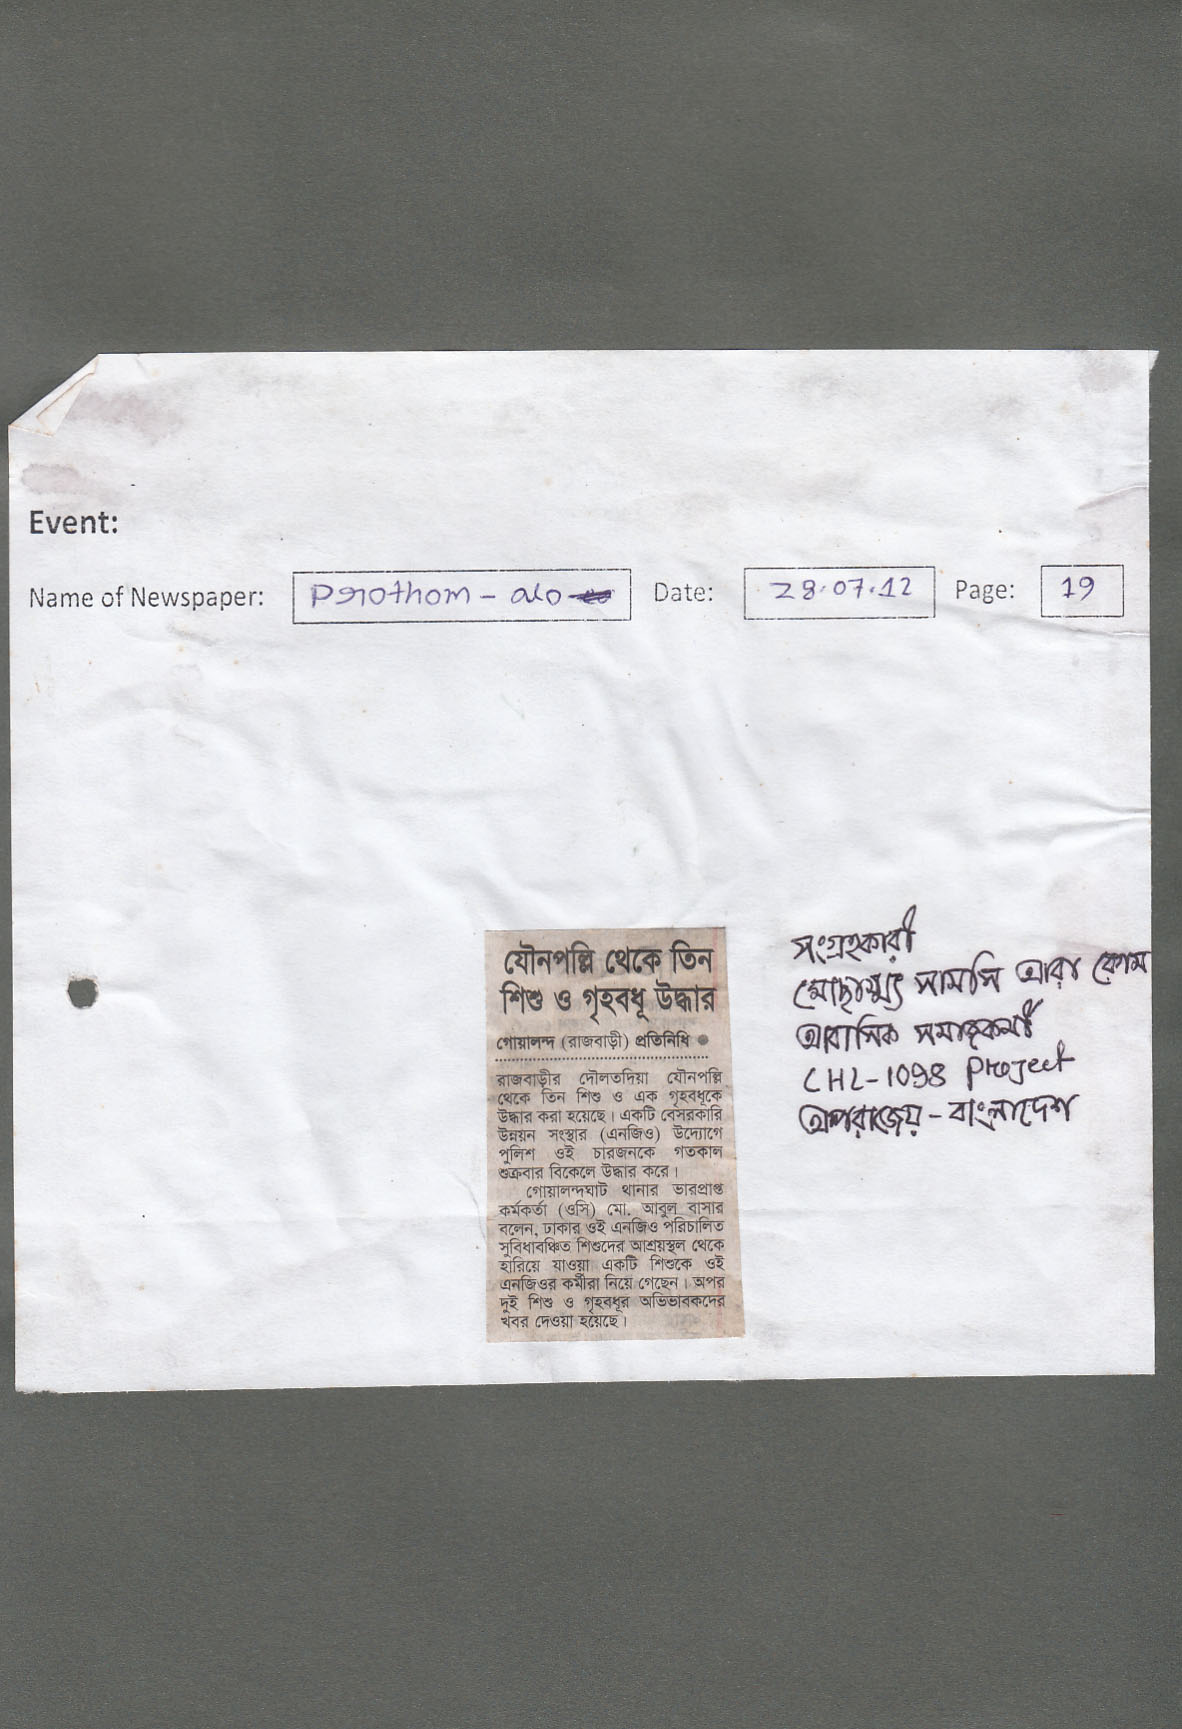 Event:
Name of Newspaper: Perothom - alo Date: 28.07.12 Page: 19
যৌনপল্লি থেকে তিন
শিশু ও গৃহবধূ উদ্ধার
গোয়ালন্দ (রাজবাড়ী) প্রতিনিধি ●
রাজবাড়ীর দৌলতদিয়া যৌনপল্লি
থেকে তিন শিশু ও এক গৃহবধূকে
উদ্ধার করা হয়েছে। একটি বেসরকারি
উন্নয়ন সংস্থার (এনজিও) উদ্যোগে
পুলিশ ওই চারজনকে গতকাল
শুক্রবার বিকেলে উদ্ধার করে।
গোয়ালন্দঘাট থানার ভারপ্রাপ্ত
কর্মকর্তা (ওসি) মো. আবুল বাসার
বলেন, ঢাকার ওই এনজিও পরিচালিত
সুবিধাবঞ্চিত শিশুদের আশ্রয়স্থল থেকে
হারিয়ে যাওয়া একটি শিশুকে ওই
এনজিওর কর্মীরা নিয়ে গেছেন। অপর
দুই শিশু ও গৃহবধূর অভিভাবকদের
খবর দেওয়া হয়েছে।
সংগ্রহকারী
সামসি আরা বেগম
আবাসিক সমাজকর্মী
CHL-1098 Project
অপরাজেয় - বাংলাদেশ